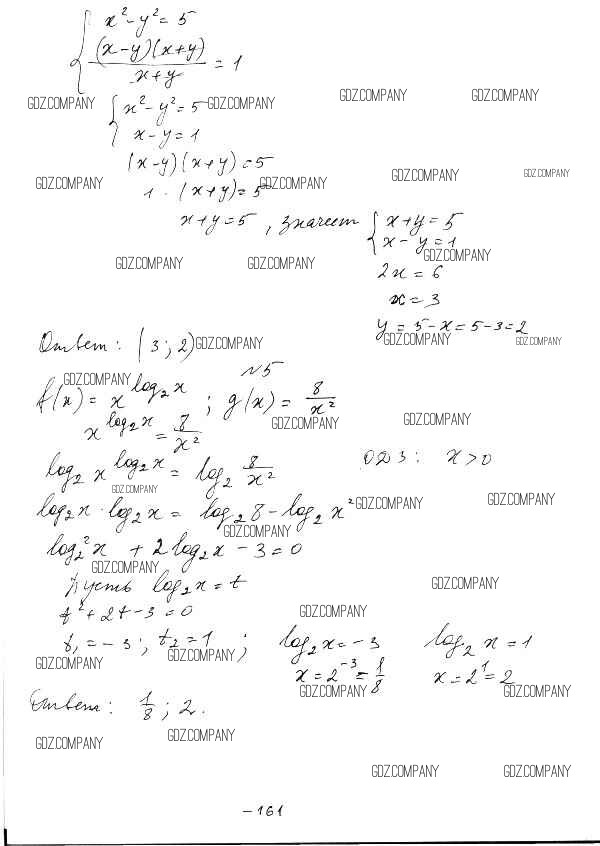 x² - y² = 5
(x-y)(x+y)/(x+y) = 1
GDZ.COMPANY GDZ.COMPANY GDZ.COMPANY GDZ.COMPANY
x² - y² = 5
x - y = 1
(x-y)(x+y) = 5
GDZ.COMPANY GDZ.COMPANY GDZ.COMPANY GDZ.COMPANY
1 · (x+y) = 5
x+y = 5, значит { x+y = 5
x - y = 1
GDZ.COMPANY GDZ.COMPANY GDZ.COMPANY
2x = 6
x = 3
y = 5 - x = 5 - 3 = 2
Ответ: (3; 2) GDZ.COMPANY GDZ.COMPANY GDZ.COMPANY
№5
GDZ.COMPANY
f(x) = x^log₂x ; g(x) = 8/x²
GDZ.COMPANY GDZ.COMPANY
x^log₂x = 8/x²
log₂ x^log₂x = log₂ 8/x² ОДЗ: x > 0
GDZ.COMPANY GDZ.COMPANY GDZ.COMPANY
log₂x · log₂x = log₂8 - log₂x²
GDZ.COMPANY
log₂²x + 2log₂x - 3 = 0
GDZ.COMPANY
Пусть log₂x = t GDZ.COMPANY
t² + 2t - 3 = 0 GDZ.COMPANY
t₁ = -3; t₂ = 1 ; log₂x = -3 log₂x = 1
GDZ.COMPANY GDZ.COMPANY
x = 2⁻³ = 1/8 x = 2¹ = 2
GDZ.COMPANY GDZ.COMPANY
Ответ: 1/8; 2.
GDZ.COMPANY GDZ.COMPANY
GDZ.COMPANY GDZ.COMPANY
-161